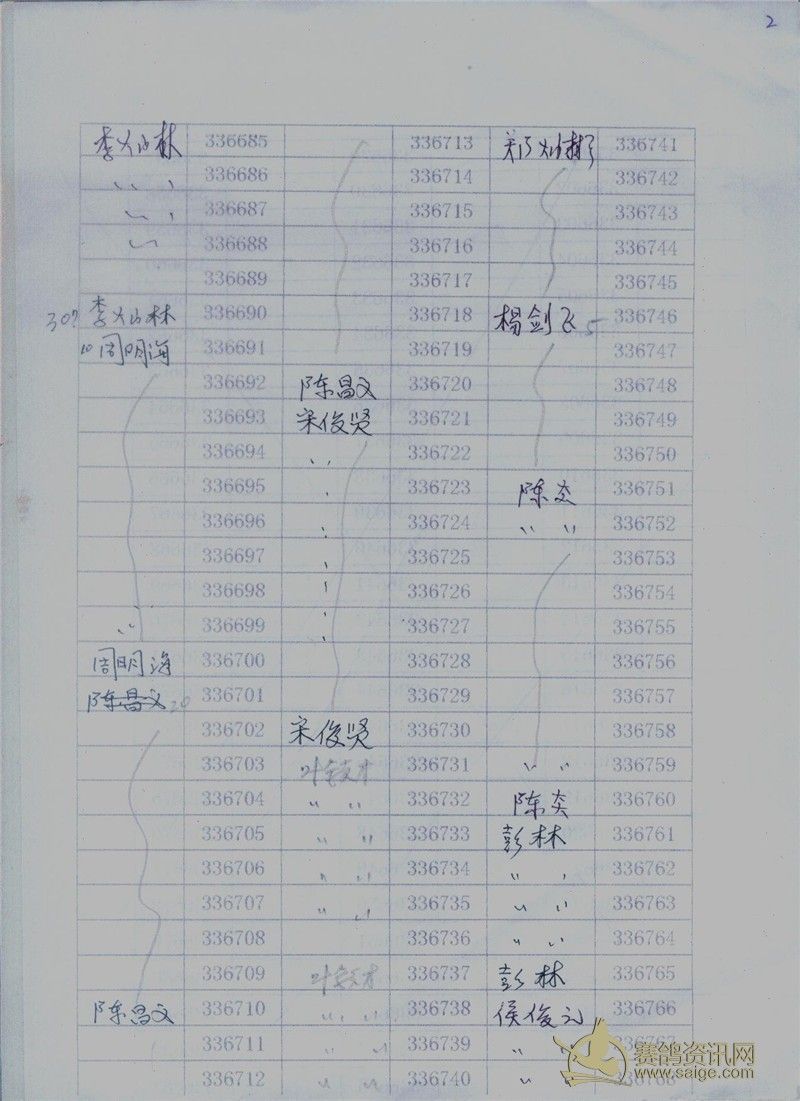 2
李灿林 336685 336713 郑灿树 336741
〃 336686 336714 336742
〃 336687 336715 336743
〃 336688 336716 336744
336689 336717 336745
30? 李灿林 336690 336718 杨剑飞 5 336746
10 周明海 336691 336719 336747
336692 陈昌文 336720 336748
336693 宋俊贤 336721 336749
336694 〃 336722 336750
336695 336723 陈炎 336751
336696 336724 〃 〃 336752
336697 336725 336753
336698 336726 336754
〃 336699 336727 336755
周明海 336700 336728 336756
陈昌文 20 336701 336729 336757
336702 宋俊贤 336730 336758
336703 336731 〃 〃 336759
336704 〃 〃 336732 陈炎 336760
336705 〃 〃 336733 彭林 336761
336706 〃 〃 336734 〃 〃 336762
336707 〃 〃 336735 〃 〃 336763
336708 336736 〃 〃 336764
336709 336737 彭林 336765
陈昌文 336710 〃 〃 336738 侯俊元 336766
336711 〃 〃 336739 〃 〃 336767
336712 〃 〃 336740 〃 〃 336768
赛鸽资讯网
www.saige.com